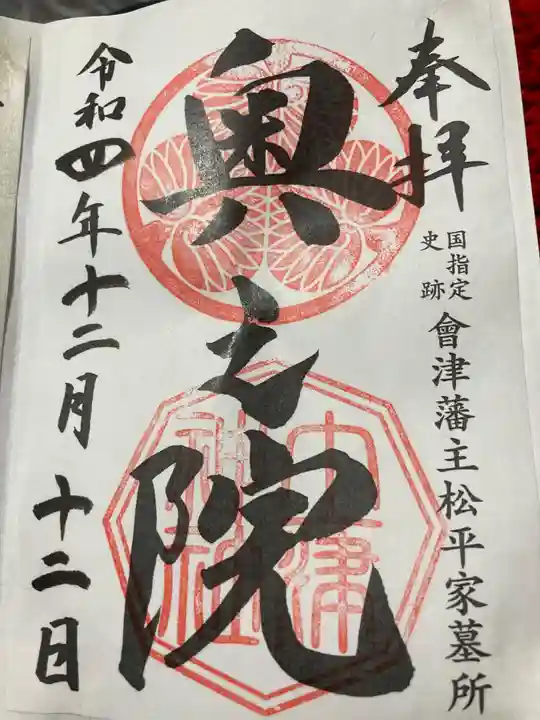 奉拝
国指定
史跡
會津藩主松平家墓所
奥之院
土津
神社
令和四年十二月十二日